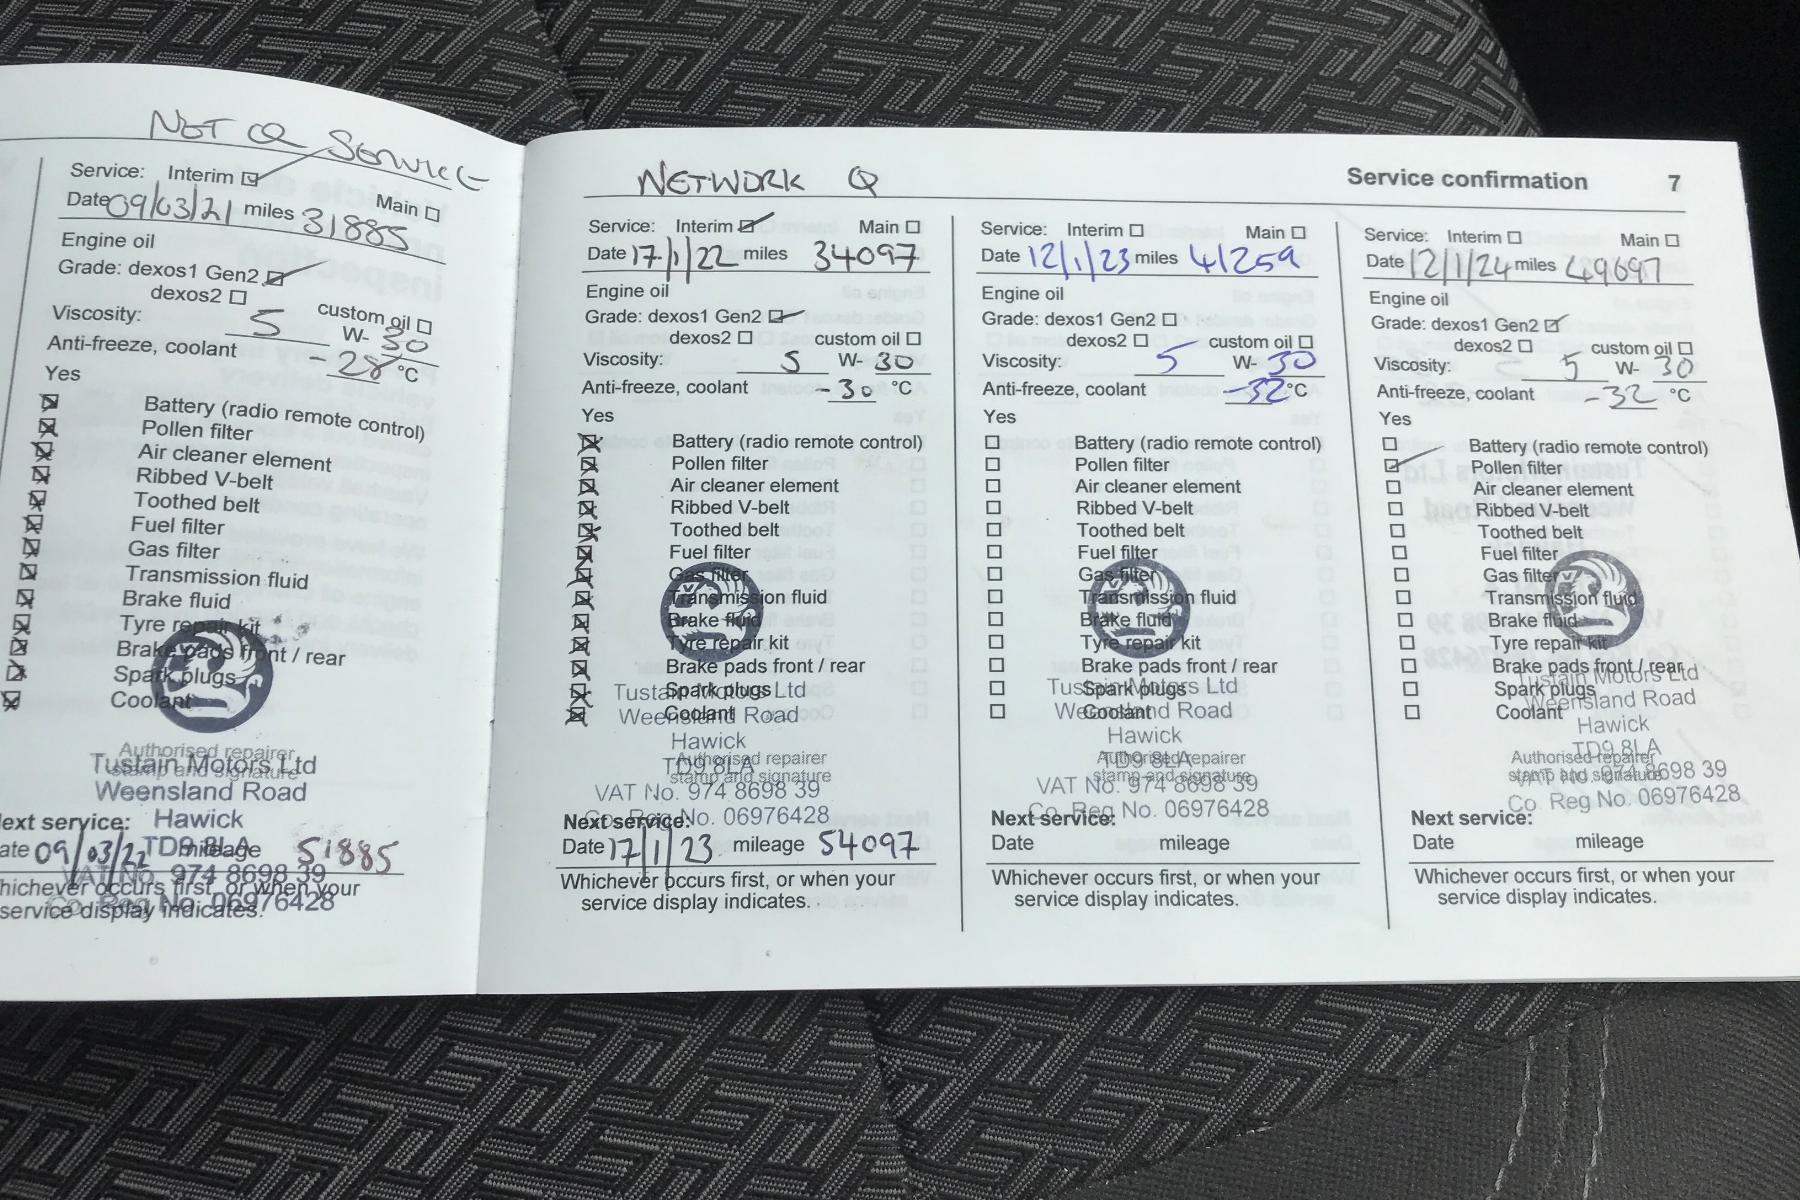 NET Q SERVICE
Service: Interim Main
Date 09/03/21 miles 31885
Engine oil
Grade: dexos1 Gen2
dexos2 custom oil
Viscosity: 5 W- 30
Anti-freeze, coolant -28 °C
Yes
Battery (radio remote control)
Pollen filter
Air cleaner element
Ribbed V-belt
Toothed belt
Fuel filter
Gas filter
Transmission fluid
Brake fluid
Tyre repair kit
Brake pads front / rear
Spark plugs
Coolant
Authorised repairer
stamp and signature
Tustain Motors Ltd
Weensland Road
Hawick
TD9 8LA
VAT No. 974 8698 39
Co. Reg No. 06976428
ext service:
ate 09/03/22 mileage 51885
hichever occurs first, or when your
service display indicates.
NETWORK Q
Service confirmation 7
Service: Interim Main
Date 17/1/22 miles 34097
Engine oil
Grade: dexos1 Gen2
dexos2 custom oil
Viscosity: 5 W- 30
Anti-freeze, coolant -30 °C
Yes
Battery (radio remote control)
Pollen filter
Air cleaner element
Ribbed V-belt
Toothed belt
Fuel filter
Gas filter
Transmission fluid
Brake fluid
Tyre repair kit
Brake pads front / rear
Spark plugs
Coolant
Tustain Motors Ltd
Weensland Road
Hawick
TD9 8LA
VAT No. 974 8698 39
Co. Reg No. 06976428
Authorised repairer
stamp and signature
Next service:
Date 17/1/23 mileage 54097
Whichever occurs first, or when your
service display indicates.
Service: Interim Main
Date 12/1/23 miles 41259
Engine oil
Grade: dexos1 Gen2
dexos2 custom oil
Viscosity: 5 W- 30
Anti-freeze, coolant -32 °C
Yes
Battery (radio remote control)
Pollen filter
Air cleaner element
Ribbed V-belt
Toothed belt
Fuel filter
Gas filter
Transmission fluid
Brake fluid
Tyre repair kit
Brake pads front / rear
Spark plugs
Coolant
Tustain Motors Ltd
Weensland Road
Hawick
TD9 8LA
VAT No. 974 8698 39
Co. Reg No. 06976428
Authorised repairer
stamp and signature
Next service:
Date mileage
Whichever occurs first, or when your
service display indicates.
Service: Interim Main
Date 12/1/24 miles 49097
Engine oil
Grade: dexos1 Gen2
dexos2 custom oil
Viscosity: 5 W- 30
Anti-freeze, coolant -32 °C
Yes
Battery (radio remote control)
Pollen filter
Air cleaner element
Ribbed V-belt
Toothed belt
Fuel filter
Gas filter
Transmission fluid
Brake fluid
Tyre repair kit
Brake pads front / rear
Spark plugs
Coolant
Tustain Motors Ltd
Weensland Road
Hawick
TD9 8LA
VAT No. 974 8698 39
Co. Reg No. 06976428
Authorised repairer
stamp and signature
Next service:
Date mileage
Whichever occurs first, or when your
service display indicates.